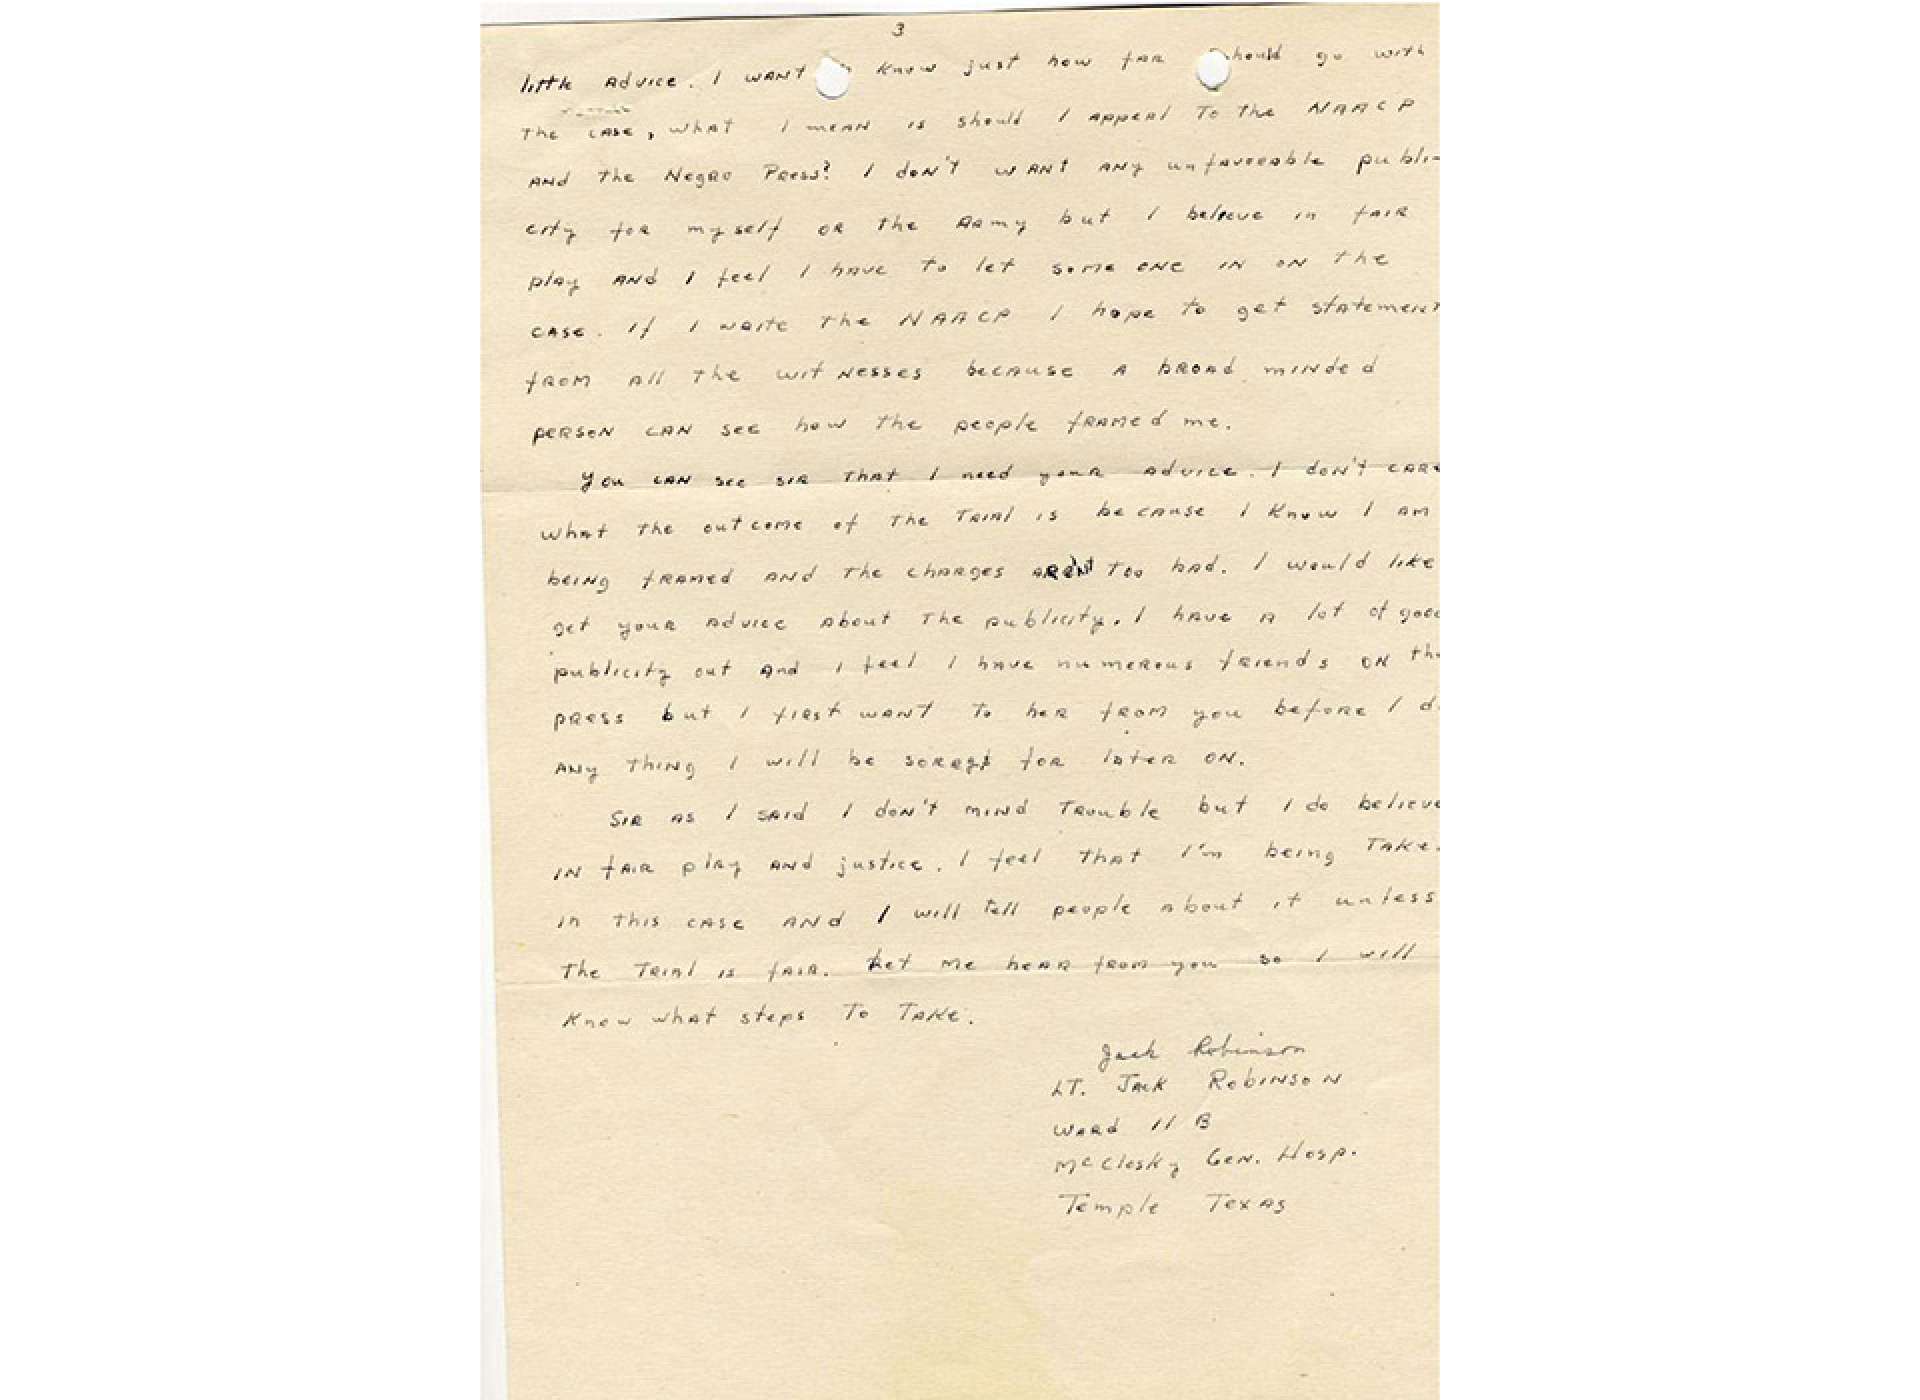 3
little advice. I want know just how far should go with
the case, what I mean is should I appeal to the NAACP
and the Negro Press? I don't want any unfavorable publi-
city for myself or the Army but I beleve in fair
play and I feel I have to let some one in on the
case. If I write the NAACP I hope to get statement
from all the witnesses because a broad minded
person can see how the people framed me.
You can see sir that I need your advice. I don't care
what the outcome of the trial is because I know I am
being framed and the charges aren't too bad. I would like
get your advice about the publicity. I have a lot of good
publicity out and I feel I have numerous friends on the
press but I first want to her from you before I
any thing I will be for later on.
Sir as I said I don't mind trouble but I do believe
in fair play and justice. I feel that I'm being take
in this case and I will tell people about it unless
the trial is fair. Let me hear from you so I will
know what steps to take.
Jack Robinson
Lt. Jack Robinson
Ward 11 B
McClosky Gen. Hosp.
Temple Texas